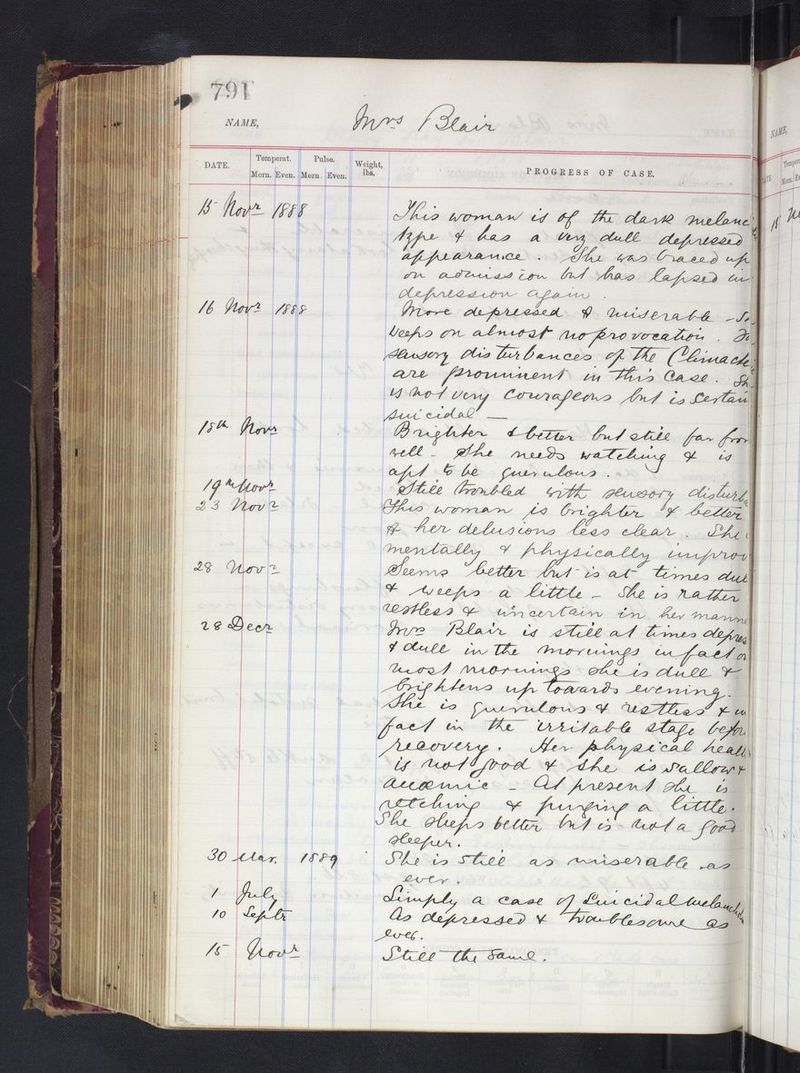 791
NAME, Mrs Blair
NAME,
DATE. Temperat. Pulse. Weight, lbs. PROGRESS OF CASE.
Morn. Even. Morn. Even.
15 Novr 1888 This woman is of the dark melanc
type & has a very dull depressed
appearance. She was braced up
on admission but has lapsed in
depression again.
16 Novr 1888 More depressed & miserable -
weeps on almost no provocation.
sensory disturbances of the Climacte
are prominent in this case. Sh
is not very courageous but is certain
suicidal —
18th Novr Brighter & better but still far from
well - She needs watching & is
apt to be querulous.
19th Novr Still troubled with sensory disturb
23 Novr This woman is brighter & better
& her delusions less clear. She
mentally & physically improv
28 Novr Seems better but is at times dul
& weeps a little - She is rather
restless & uncertain in her manne
28 Decr Mrs Blair is still at times depres
& dull in the mornings in fact on
most mornings she is dull &
brightens up towards evening.
She is querulous & restless & in
fact in the irritable stage before
recovery. Her physical healt
is not good & she is sallow &
anæmic - At present she is
retching & purging a little.
She sleeps better but is not a good
sleeper.
30 Mar. 1889 She is still as miserable as
ever.
1 July Simply a case of Suicidal Melancholia
10 Septr As depressed & troublesome as
ever.
15 Novr Still the same.